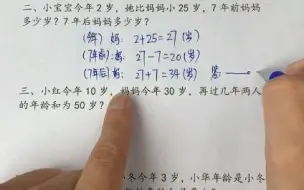 二、小宝宝今年2岁，她比妈妈小25岁，7年前妈妈
多少岁？7年后妈妈多少岁？
(今年) 妈：2+25=27(岁)
(7年前)妈：27-7=20(岁)
(7年后)妈：27+7=34(岁) 答：
三、小红今年10岁，妈妈今年30岁，再过几年两人
的年龄和为50岁？
冬今年3岁，小华年龄是小冬